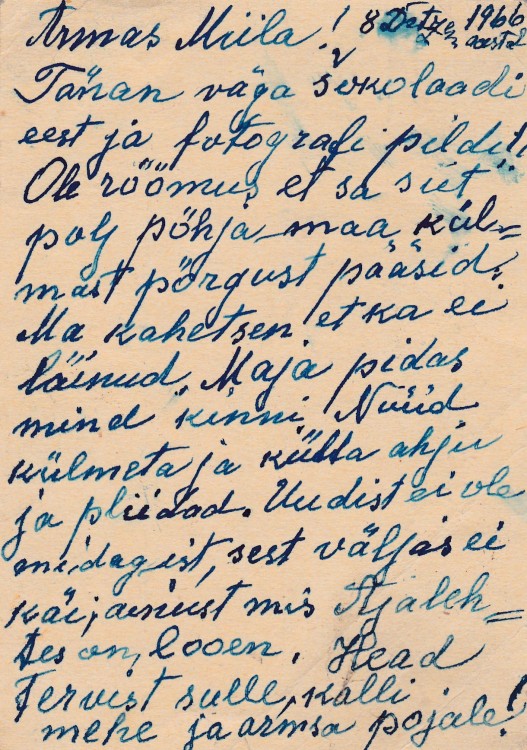 Armas Miila! 8 Detse. 1966
aasta
Tänan väga šokolaadi
eest ja fotografi pildi
Ole rõõmus, et sa siit
polj põhja maa kül=
mast põrgust pääsid.
Ma kahetsen et ka ei
läinud. Maja pidas
mind kinni. Nüüd
külmeta ja kütta ahju
ja pliidad. Uudist ei ole
midagist, sest väljas ei
käi, ainust mis Ajaleh=
tes on, looen. Head
Tervist sulle, kalli
mehe ja armsa pojale!